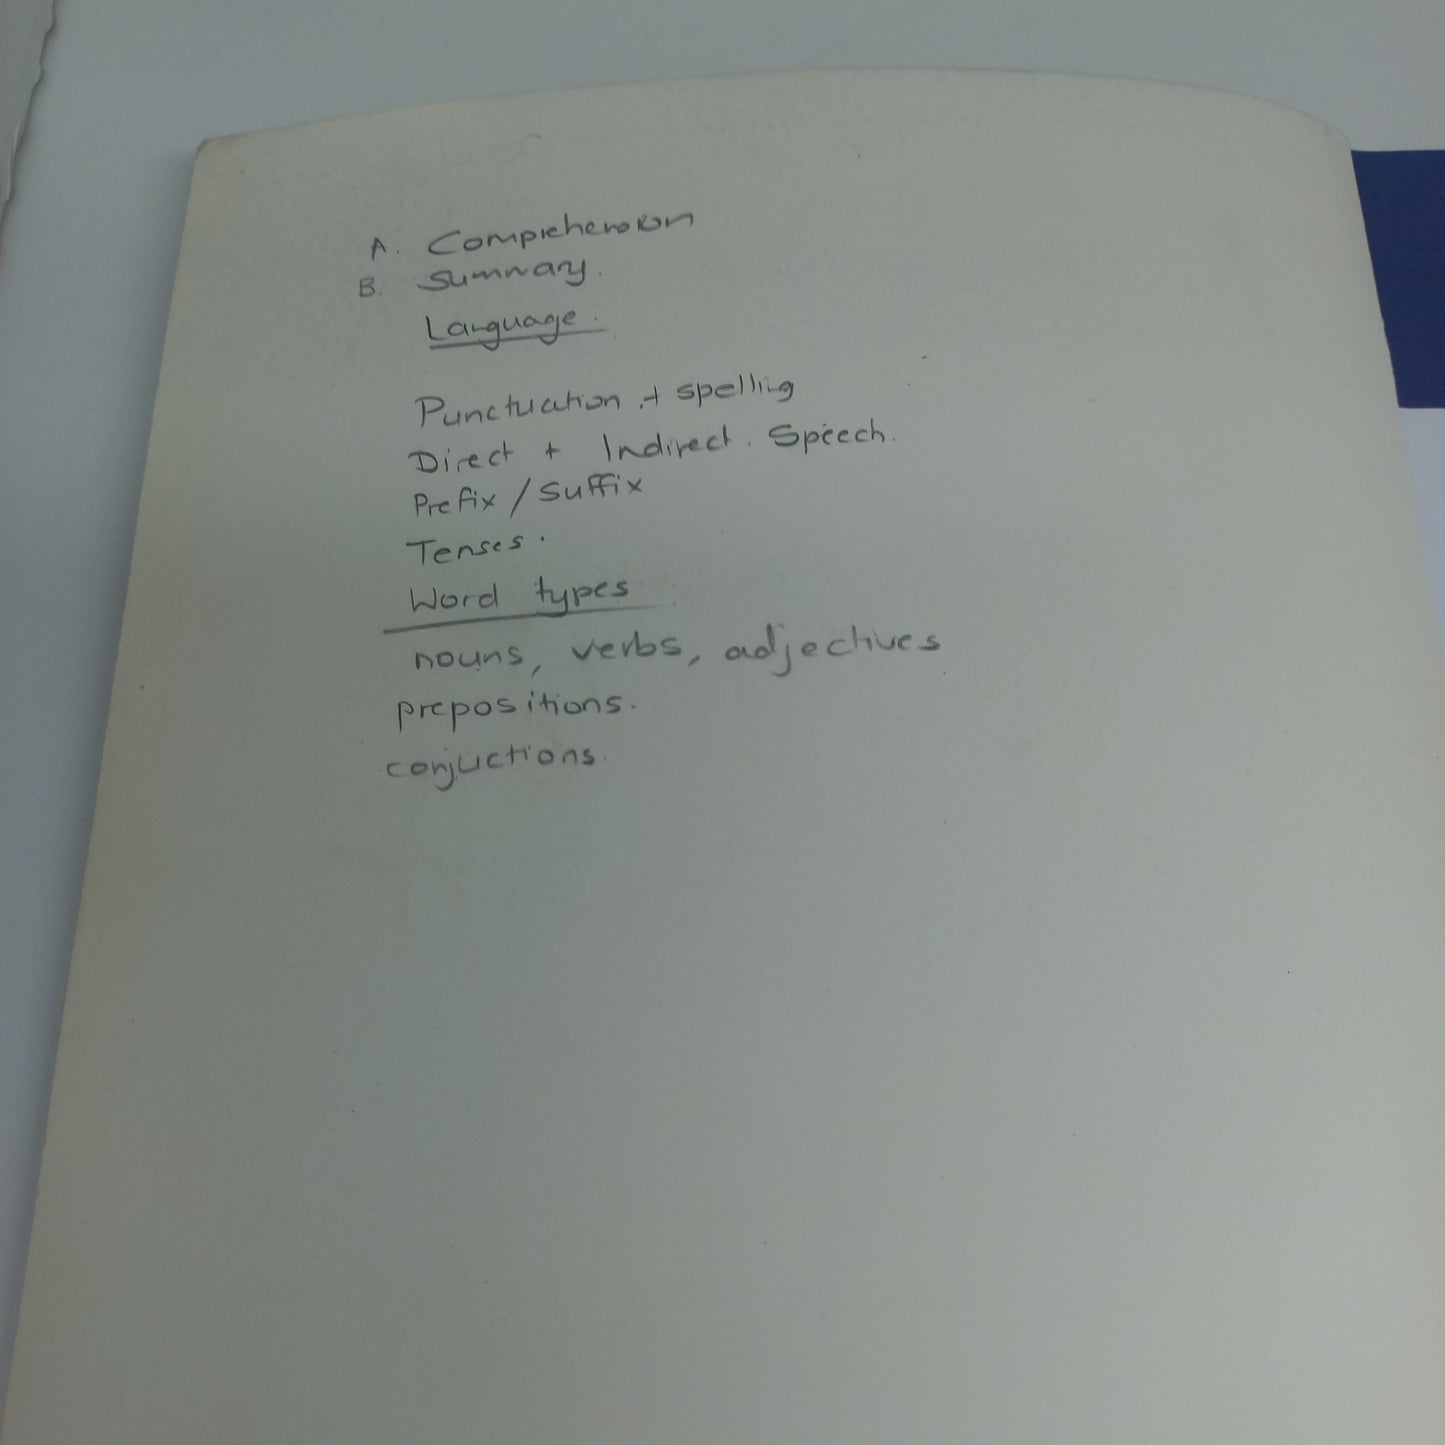 A. Comprehension
B. Summary.
Language.
Punctuation + spelling
Direct + Indirect. Speech.
Prefix / Suffix
Tenses.
Word types
nouns, verbs, adjectives
prepositions.
conjuctions.